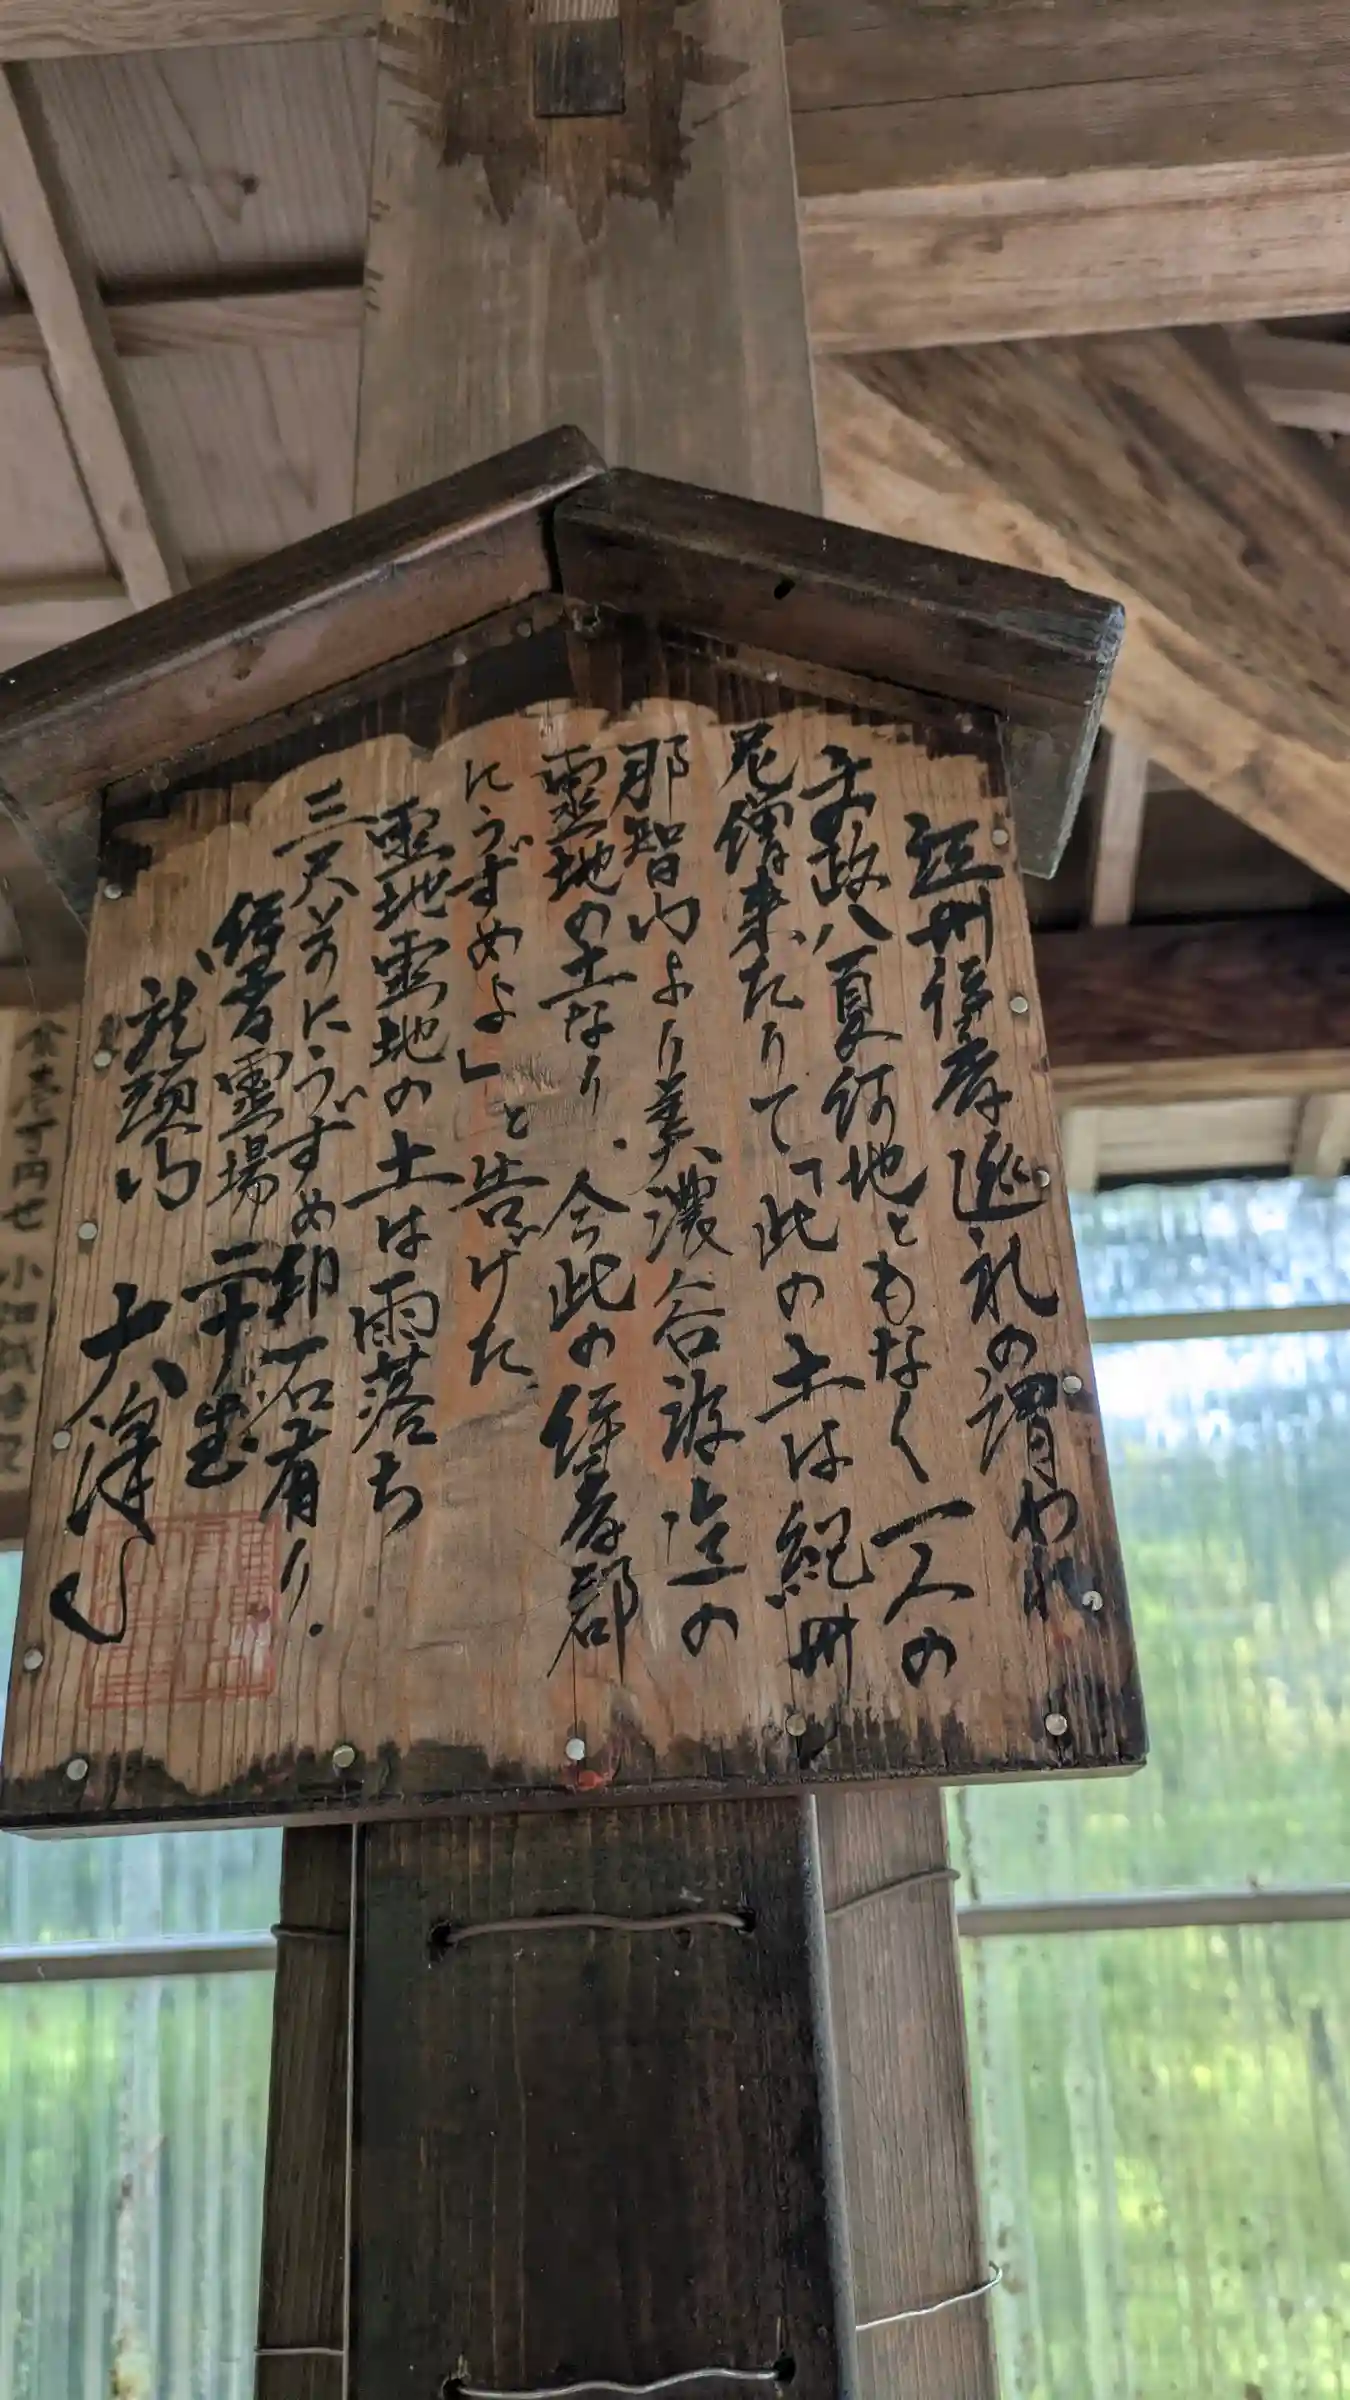 江州伊香巡礼の謂われ
文政八夏何地ともなく一人の
尼僧来たりて「此の土は紀州
那智山より美濃谷汲迄の
霊地の土なり、今此の伊香郡
にうずめよ」と告げた
霊地霊地の土は雨落ち
三尺下にうずめ印石有り.
伊香霊場 二十番
龍頭山
大澤